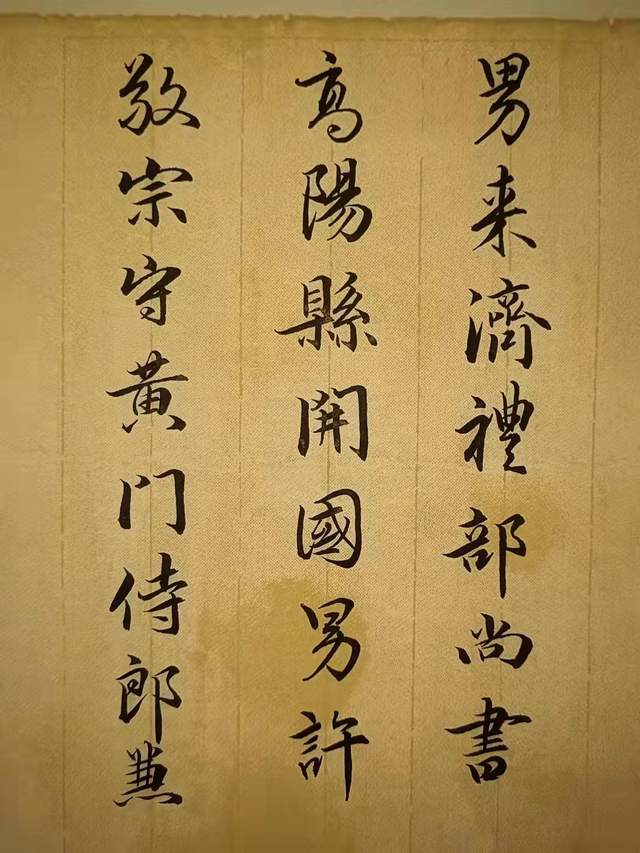 男来濟禮部尚書
高陽縣開國男許
敬宗守黃门侍郎兼